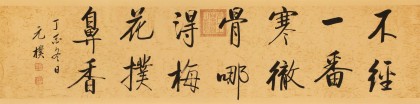 不經
一番
寒徹
骨哪
得梅
花撲
鼻香
丁冬日
元樸